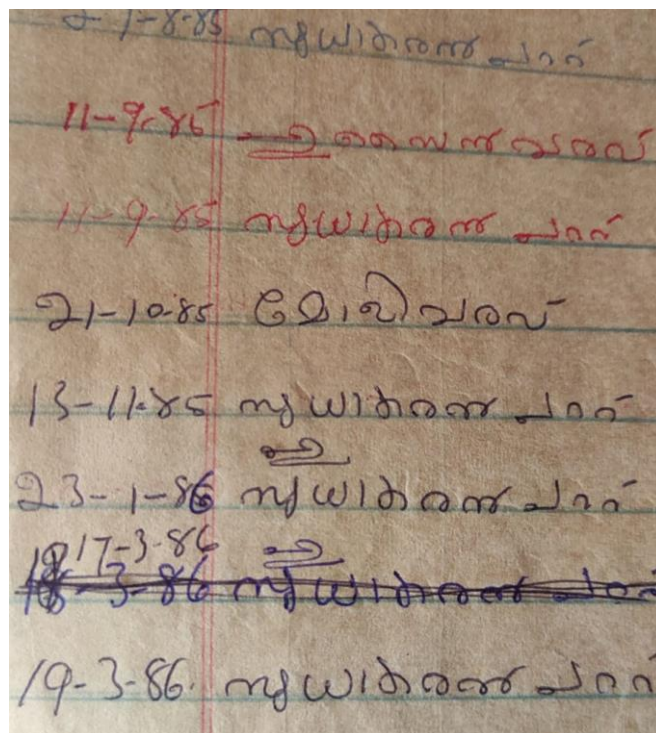 21-8-85 സുധാകരൻ പററ്
11-9-85 ഹുസൈൻ വരവ്
11-9-85 സുധാകരൻ പററ്
21-10-85 മോളി വരവ്
13-11-85 സുധാകരൻ പററ്
23-1-86 സുധാകരൻ പററ്
17-3-86
18-3-86 സുധാകരൻ പററ്
19-3-86 സുധാകരൻ പററ്